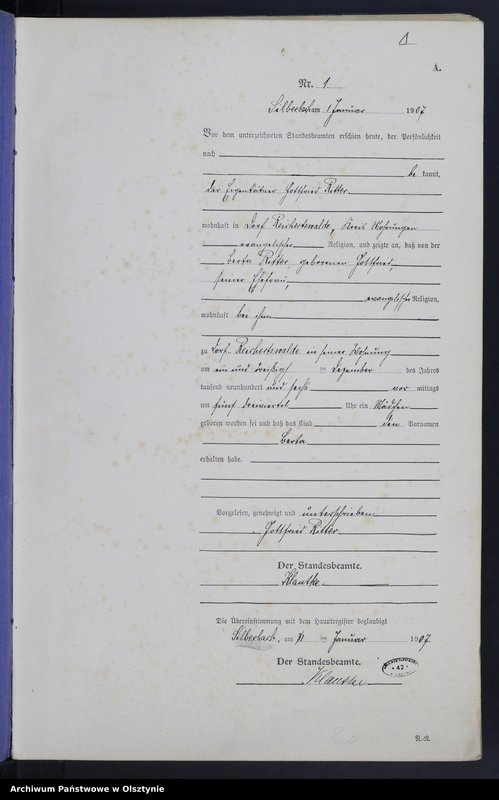 1
A.
Nr. 1.
Silberbach am 1 Januar 1907
Vor dem unterzeichneten Standesbeamten erschien heute, der Persönlichkeit
nach
be kannt,
der Eigenkätner Gottfried Ritter
wohnhaft in Dorf Reichertswalde, Kreis Mohrungen
evangelischer Religion, und zeigte an, daß von der
Berta Ritter geborenen Gottfried,
seiner Ehefrau,
evangelischer Religion,
wohnhaft bei ihm
zu Dorf Reichertswalde in seiner Wohnung
am ein und dreißig im Dezember des Jahres
tausend neunhundert und sechs vor mittags
um fünf dreiviertel Uhr ein Mädchen
geboren worden sei und daß das Kind den Vornamen
Berta
erhalten habe.
Vorgelesen, genehmigt und unterschrieben
Gottfried Ritter
Der Standesbeamte.
Klautke.
Die Übereinstimmung mit dem Hauptregister beglaubigt
Silberbach, am 1 ten Januar 1907.
Der Standesbeamte.
* 42 *
Klautke
N.-R.
Archiwum Państwowe w Olsztynie